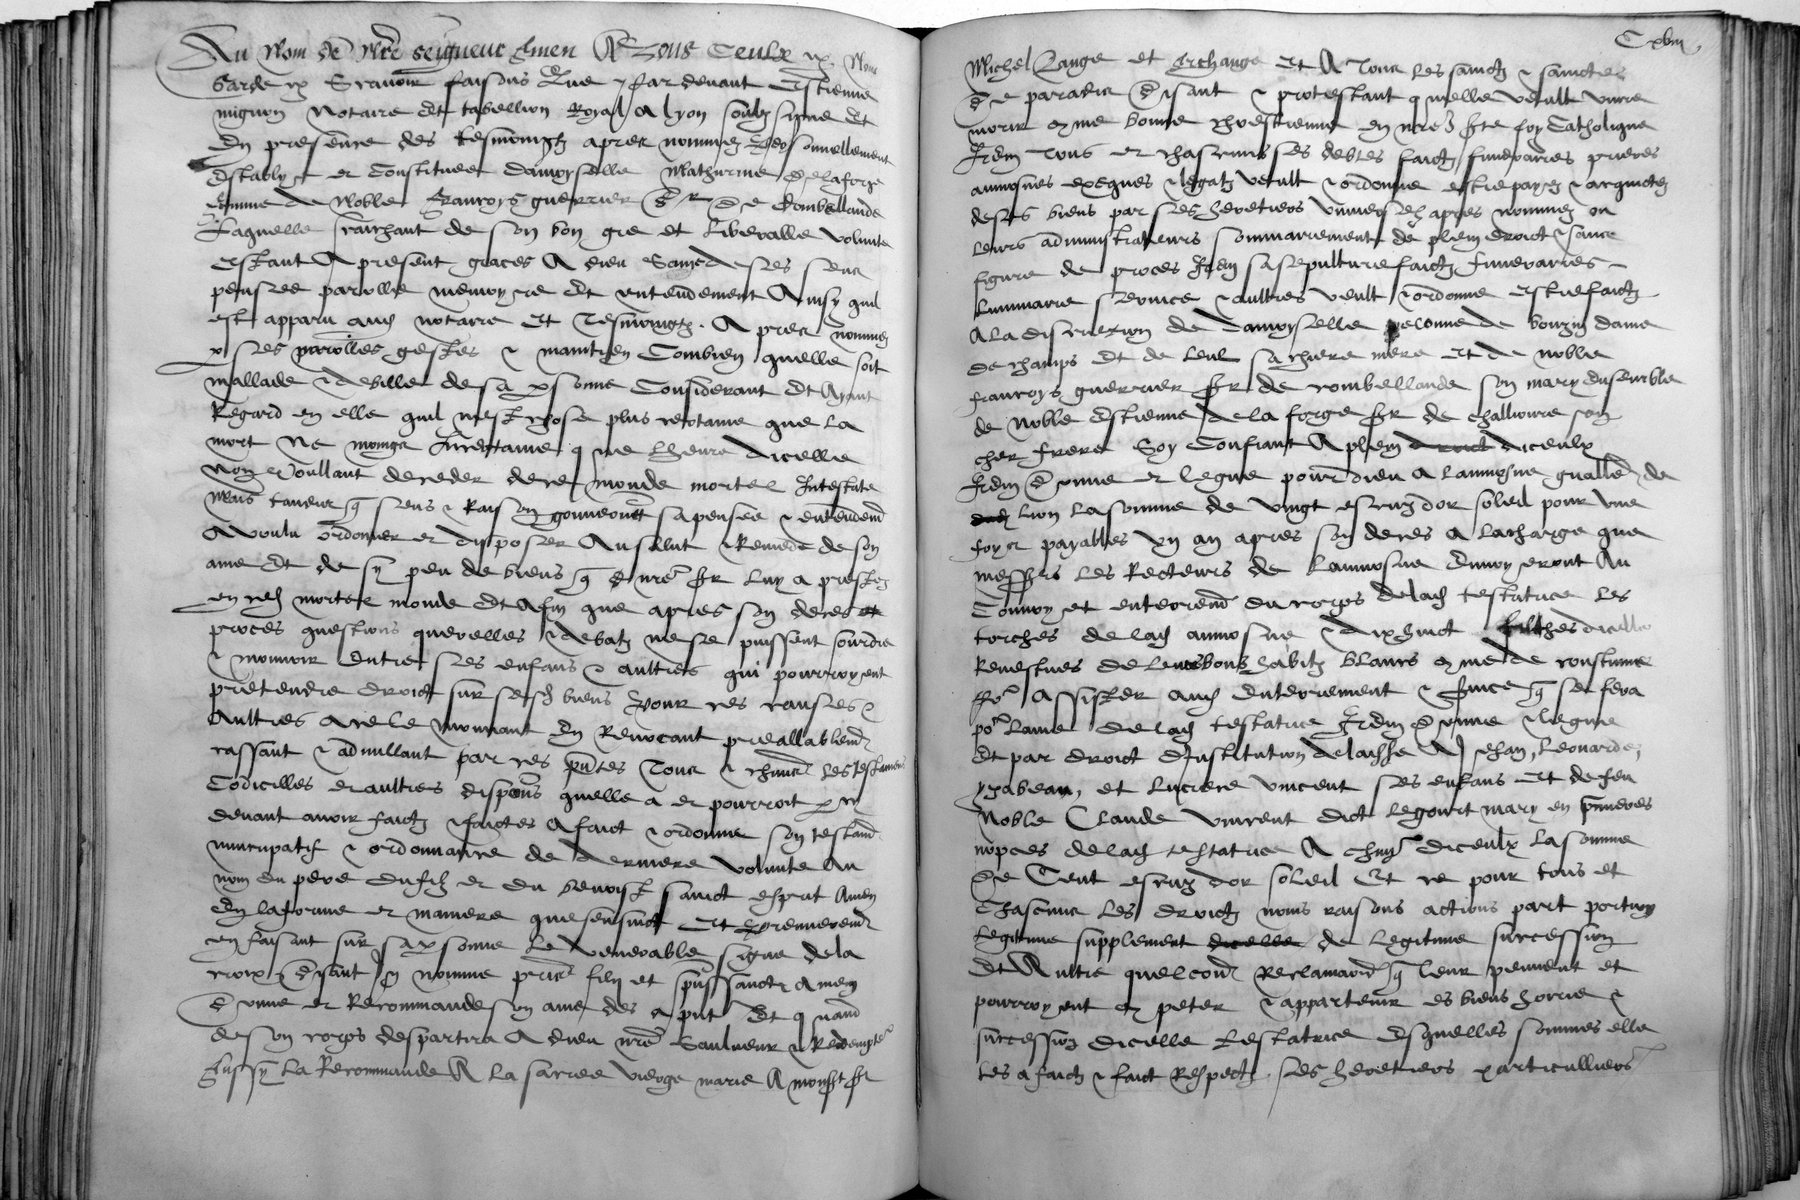 Au Nom de Nre seigneur Amen A Tous Ceulx &c. Nous
Garde &c Scavoir faisons Que par devant Estienne
mignon Notaire et tabellion Royal A lyon soubz signe Et
En presence des tesmoingtz apres nommez personnellement
Establye et Constituee damoyselle Mathurine de la forge
femme de Noble Francoys guerrier Sr de Combellande
Laquelle saichant de son bon gre et Liberalle volunte
Estant A present graces A dieu Saine de ses sens
pensee parolle memoyre et entendement Ainsy quil
est apparu ausd notaire et Tesmoingtz Apres nommez
p ses parolles gestes & maintien Combien quelle soit
mallade & debille de sa psonne Considerant et Ayant
Regard en elle quil nest chose plus certaine que la
mort Ne moings Incertaine que Lheure dicelle
Non Voullant deceder de ce monde mortel Intestate
Mais tandis q sens & Raison gouvernent sa pensee & entendemt
A voulu ordonner et disposer Au salut & Remede de son
ame et de sy peu de biens q d nre Sr Luy a prestez
en ce mortel monde Et Afin que apres son deces
proces questions querelles & debatz ne se puissent sourdre
& mouvoir Entre ses enfans & aultres qui pourroyent
pretendre droict sur sesd biens Pour ces causes &
Aultres A ce le mouvant En Revocant preallablemt
cassant & adnullant par ces pntes Tous & chuns Les testamens
Codicilles et aultres disposons quelle a et pourroit p cy
devant avoir faictz & faictes A faict & ordonne son testamt
nuncupatif & ordonnance de derniere volunte Au
nom du pere du filz et du benoist sainct esprit Amen
En la forme et maniere que sensuict Et Premieremt
en faisant sur sa psonne Le venerable signe de la
croix disant In nomine pris filii et spus sancti amen
donne et Recommande son ame des a pnt Et quand
de son corps despartira A dieu nre Saulveur & Redempter
Aussy La Recommande A La sacree vierge marie A monsr St
Cxviii
Michel Lange et Archange Et A Tous les sainctz & sainctes
De paradis Disant & protestant quelle veult vivre
morir come bonne chrestienne en nre Ste foy Catholique
Item Tous et chascuns ses debtes faictz funeraires prieres
aumosnes exeques & legatz veult & ordonne estre payez & acquictez
de ses biens par ses heretiers universelz apres nommez ou
leurs administrateurs sommairement de plein droict & sans
figure de proces Item sa sepulture faictz funeraires
luminaire service & aultres veult & ordonne estre faictz
A La discretion de damoyselle de bourzin dame
de champs Et de Leul sa chere mere Et de noble
francoys guerrier Sr de combellande son mary Ensemble
de Noble Estienne de la forge Sr de challioure son
cher frere Soy Confiant A plein diceulx
Item Donne et legue pour dieu A laumosne gnalle de
Lion La somme de vingt escuz dor soleil pour une
foys payables un an apres son deces A la charge que
messrs Les Recteurs de Laumosne Envoyeront Au
Convoy et enterremt du corps de lad testatrice Les
torches de lad aumosne & dix huict filhes dicelle
Revestues de leurs bons habitz blancs come de coustume
Pr Assister aud Enterrement & service q se fera
pr Lame de lad testatrice Item Donne & legue
Et par droict Institution delaisse A Jehan, Leonarde,
yzabeau, et Lucrece vincent ses enfans Et de feu
Noble Claude vincent dict Legourt mary en premieres
nopces de lad testatrice A chun diceulx La somme
De Cent escuz dor soleil Et ce pour tous et
Chascuns Les droictz noms raisons actions part portion
Legitime supplement dicelle de legitime succession
Et Aultre quelconq Reclamaon q leur peuvent et
pourroyent competer & appartenir es biens hoirie &
succession dicelle Testatrice Esquelles sommes elle
les a faictz & faict Respectz ses heretiers particulliers